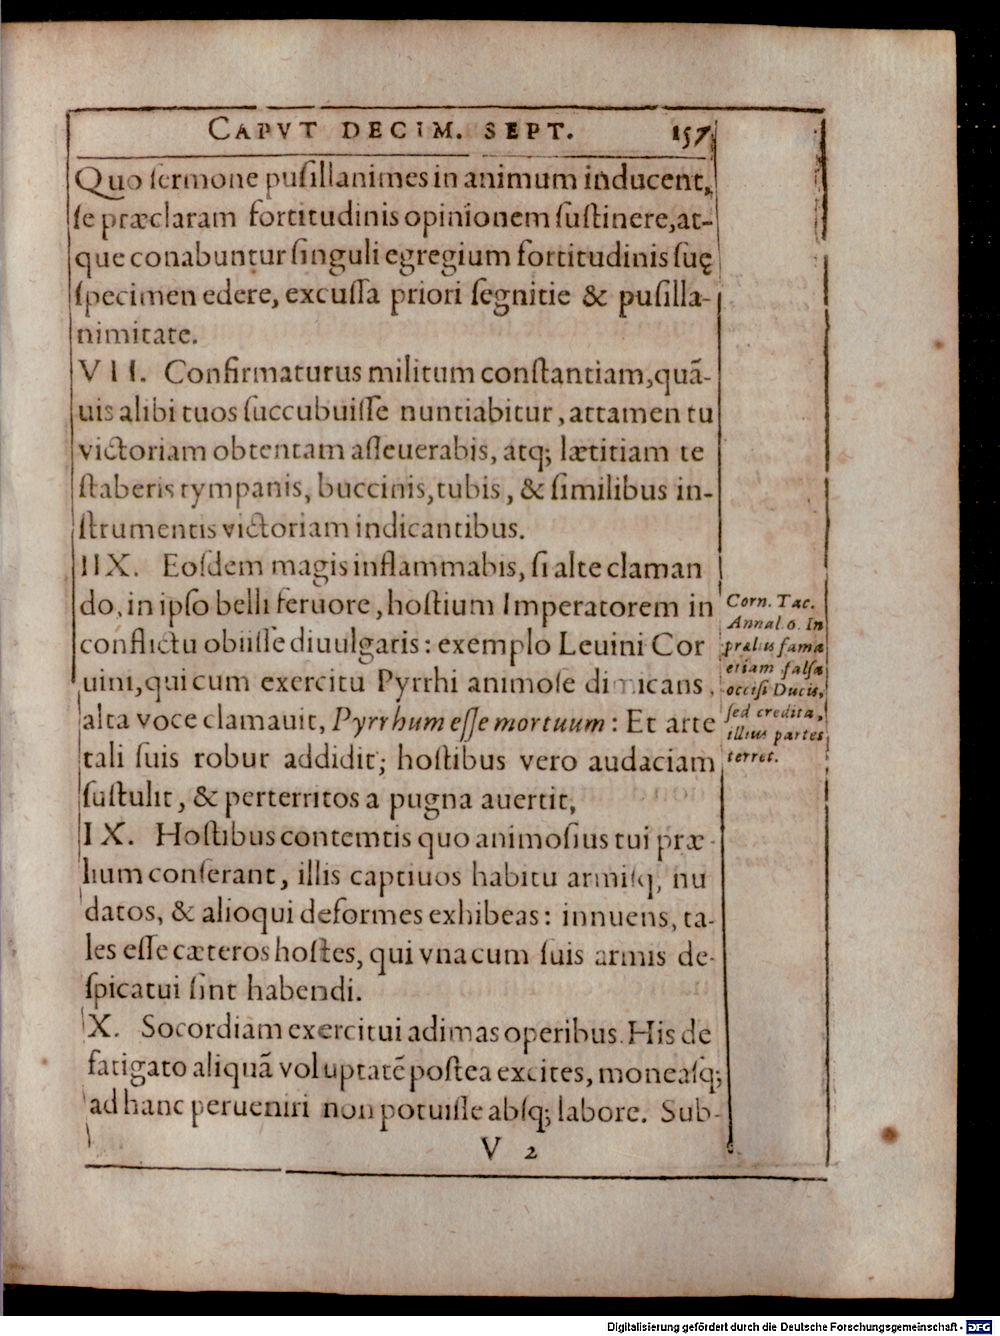 CAPVT DECIM. SEPT. 157
Quo ſermone puſillanimes in animum inducent,
ſe præclaram fortitudinis opinionem ſuſtinere, at-
que conabuntur ſinguli egregium fortitudinis ſuę
ſpecimen edere, excuſſa priori ſegnitie & puſilla-
nimitate.
VII. Confirmaturus militum conſtantiam, quã-
uis alibi tuos ſuccubuiſſe nuntiabitur, attamen tu
victoriam obtentam aſſeuerabis, atq; lætitiam te
ſtaberis tympanis, buccinis, tubis, & ſimilibus in-
ſtrumentis victoriam indicantibus.
IIX. Eoſdem magis inflammabis, ſi alte claman
do, in ipſo belli feruore, hoſtium Imperatorem in
conflictu obiiſſe diuulgaris: exemplo Leuini Cor
uini, qui cum exercitu Pyrrhi animoſe dimicans,
alta voce clamauit, Pyrrhum eſſe mortuum: Et arte
tali ſuis robur addidit; hoſtibus vero audaciam
ſuſtulit, & perterritos a pugna auertit,
IX. Hoſtibus contemtis quo animoſius tui præ-
lium conſerant, illis captiuos habitu armiſq; nu
datos, & alioqui deformes exhibeas: innuens, ta-
les eſſe cæteros hoſtes, qui vna cum ſuis armis de-
ſpicatui ſint habendi.
X. Socordiam exercitui adimas operibus. His de
fatigato aliquã voluptatẽ poſtea excites, moneaſq;
ad hanc perueniri non potuiſſe abſq; labore. Sub-
V 2
Corn. Tac.
Annal. 6. In
præliis fama
etiam falſa
occiſi Ducis,
ſed credita,
illius partes
terret.
Digitalisierung gefördert durch die Deutsche Forschungsgemeinschaft - DFG